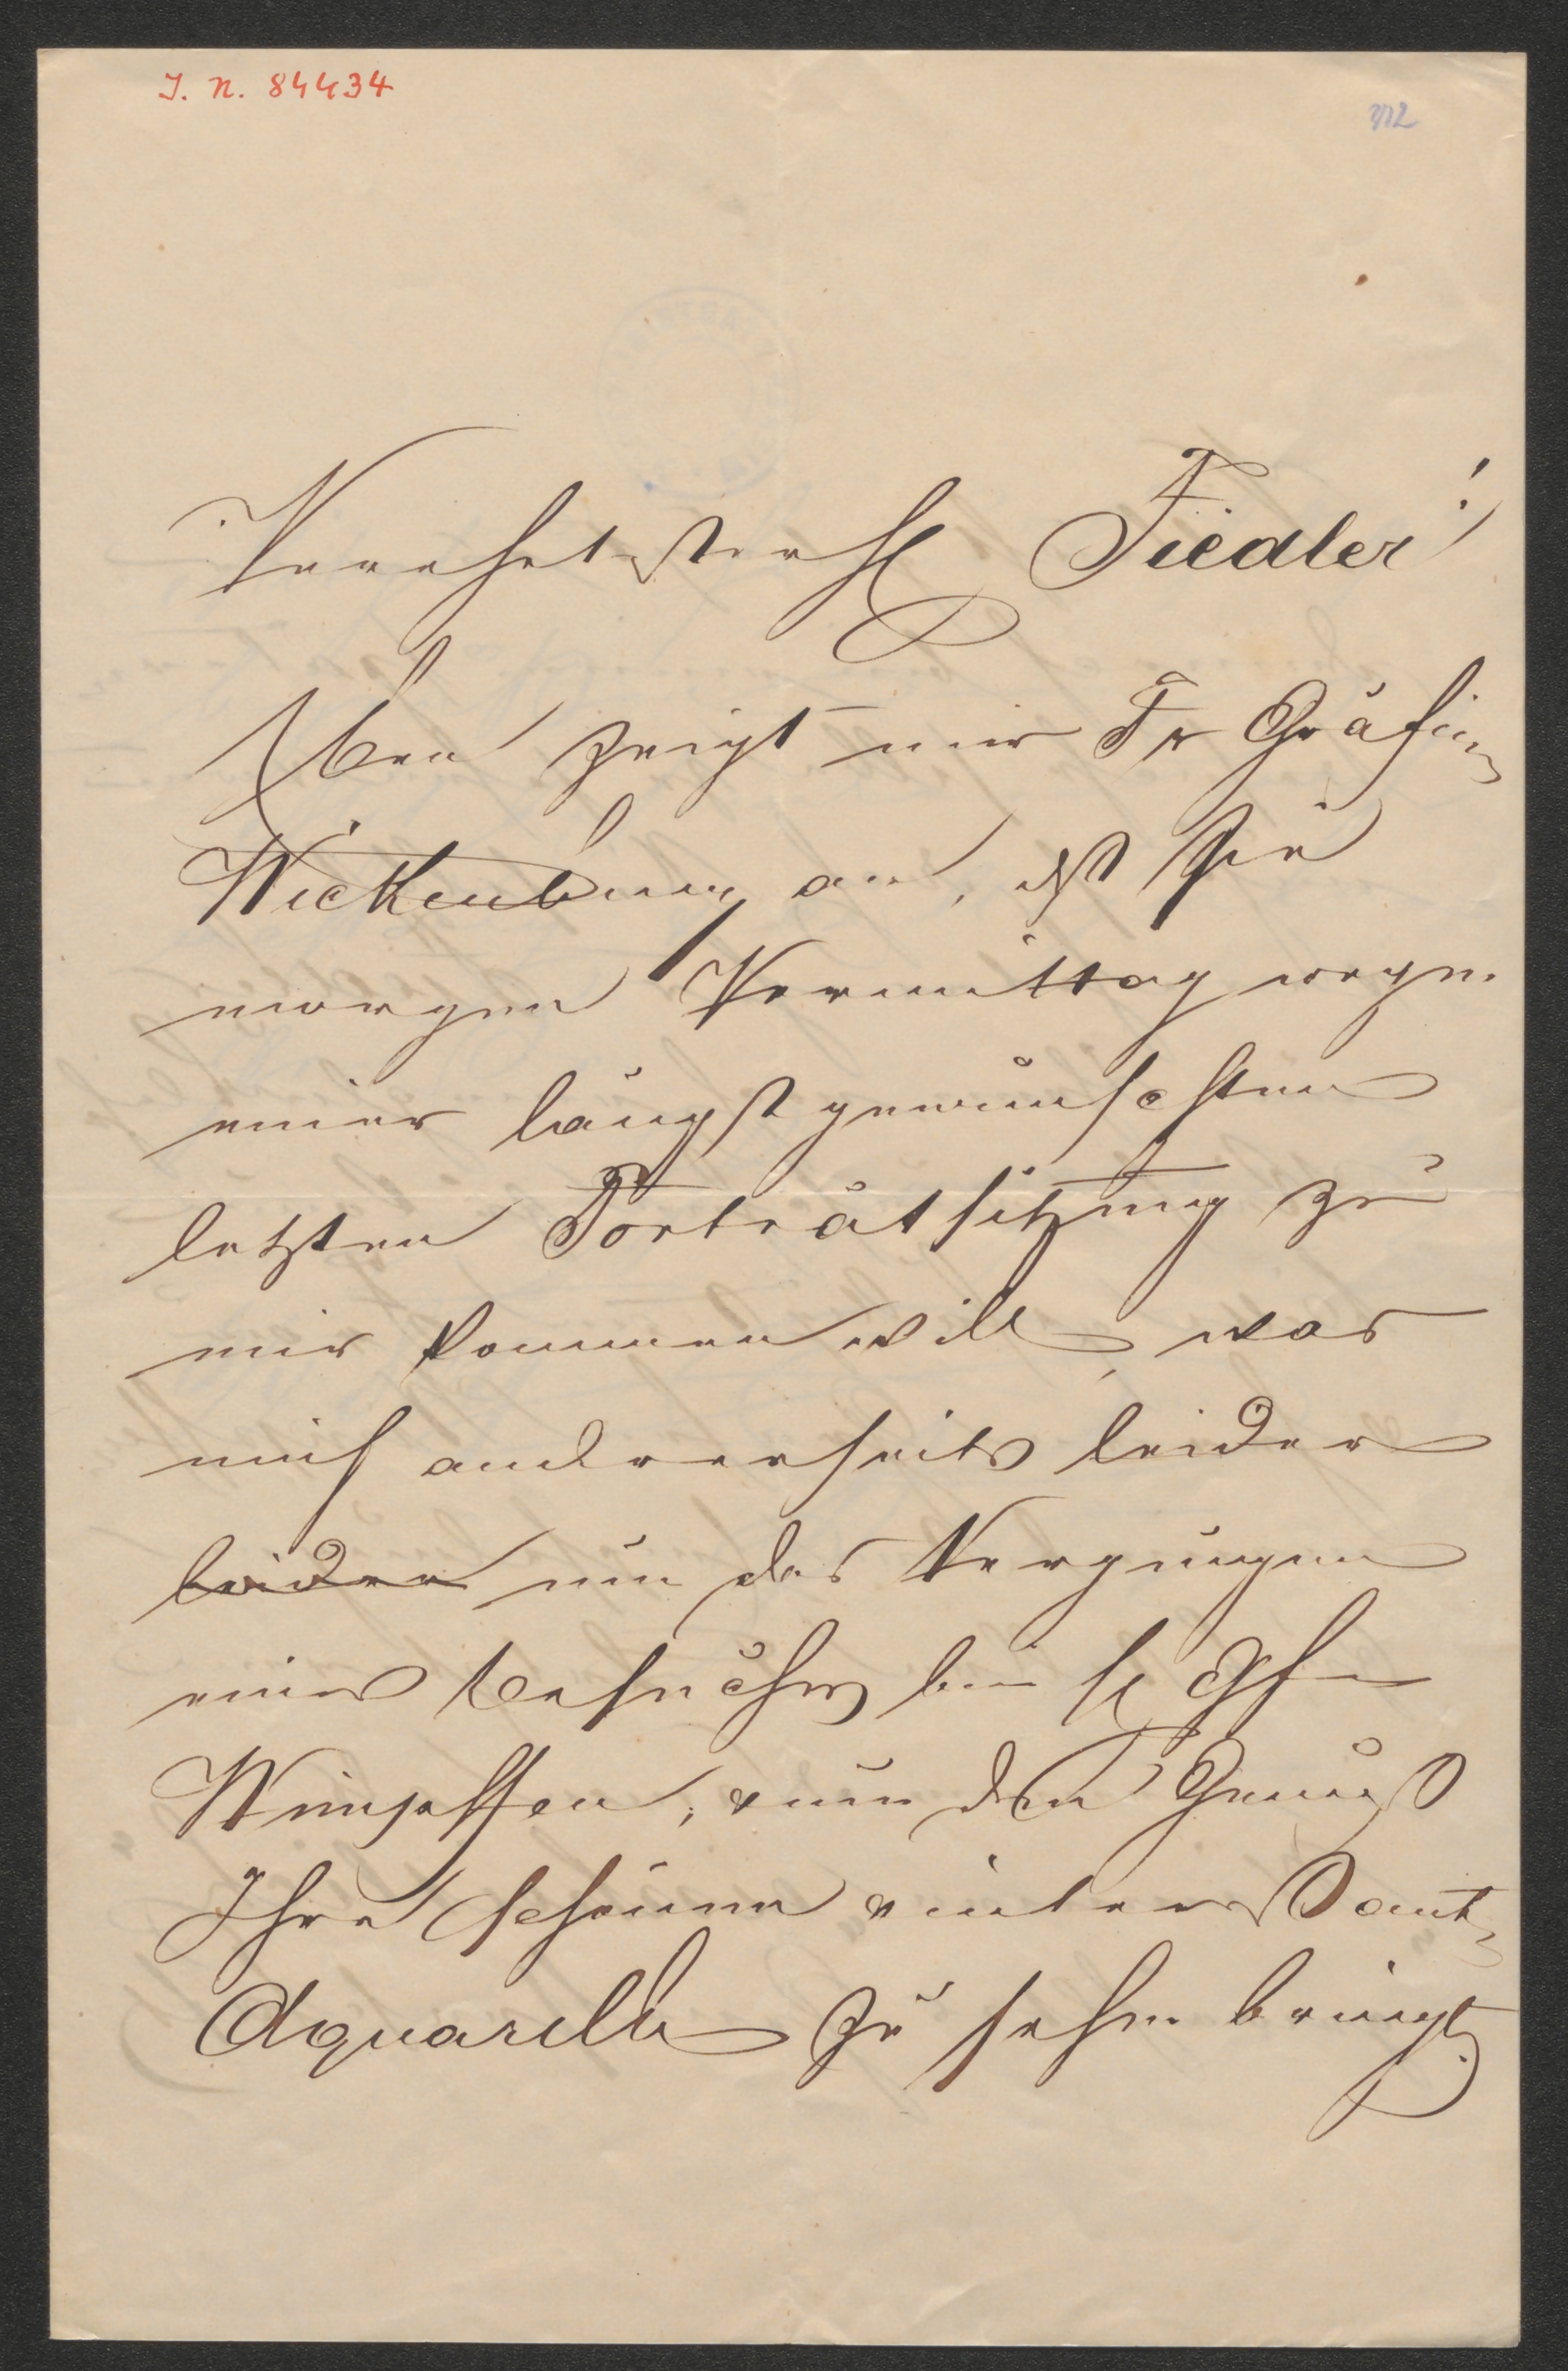 J. N. 84434
Verehrtester H Fiedler!
Eben zeigt mir Fr Gräfin
Wickenburg an, dß sie
morgen Vormittag wegen
einer längst gewünschten
letzten Porträtsitzung zu
mir kommen will, was
mich andererseits leider
leider um das Vergnügen
eines Besuches bei H Gfen
Wimpffen, u um den Genuß
Ihre schönen interessant
Aquarelle zu sehen bringt.